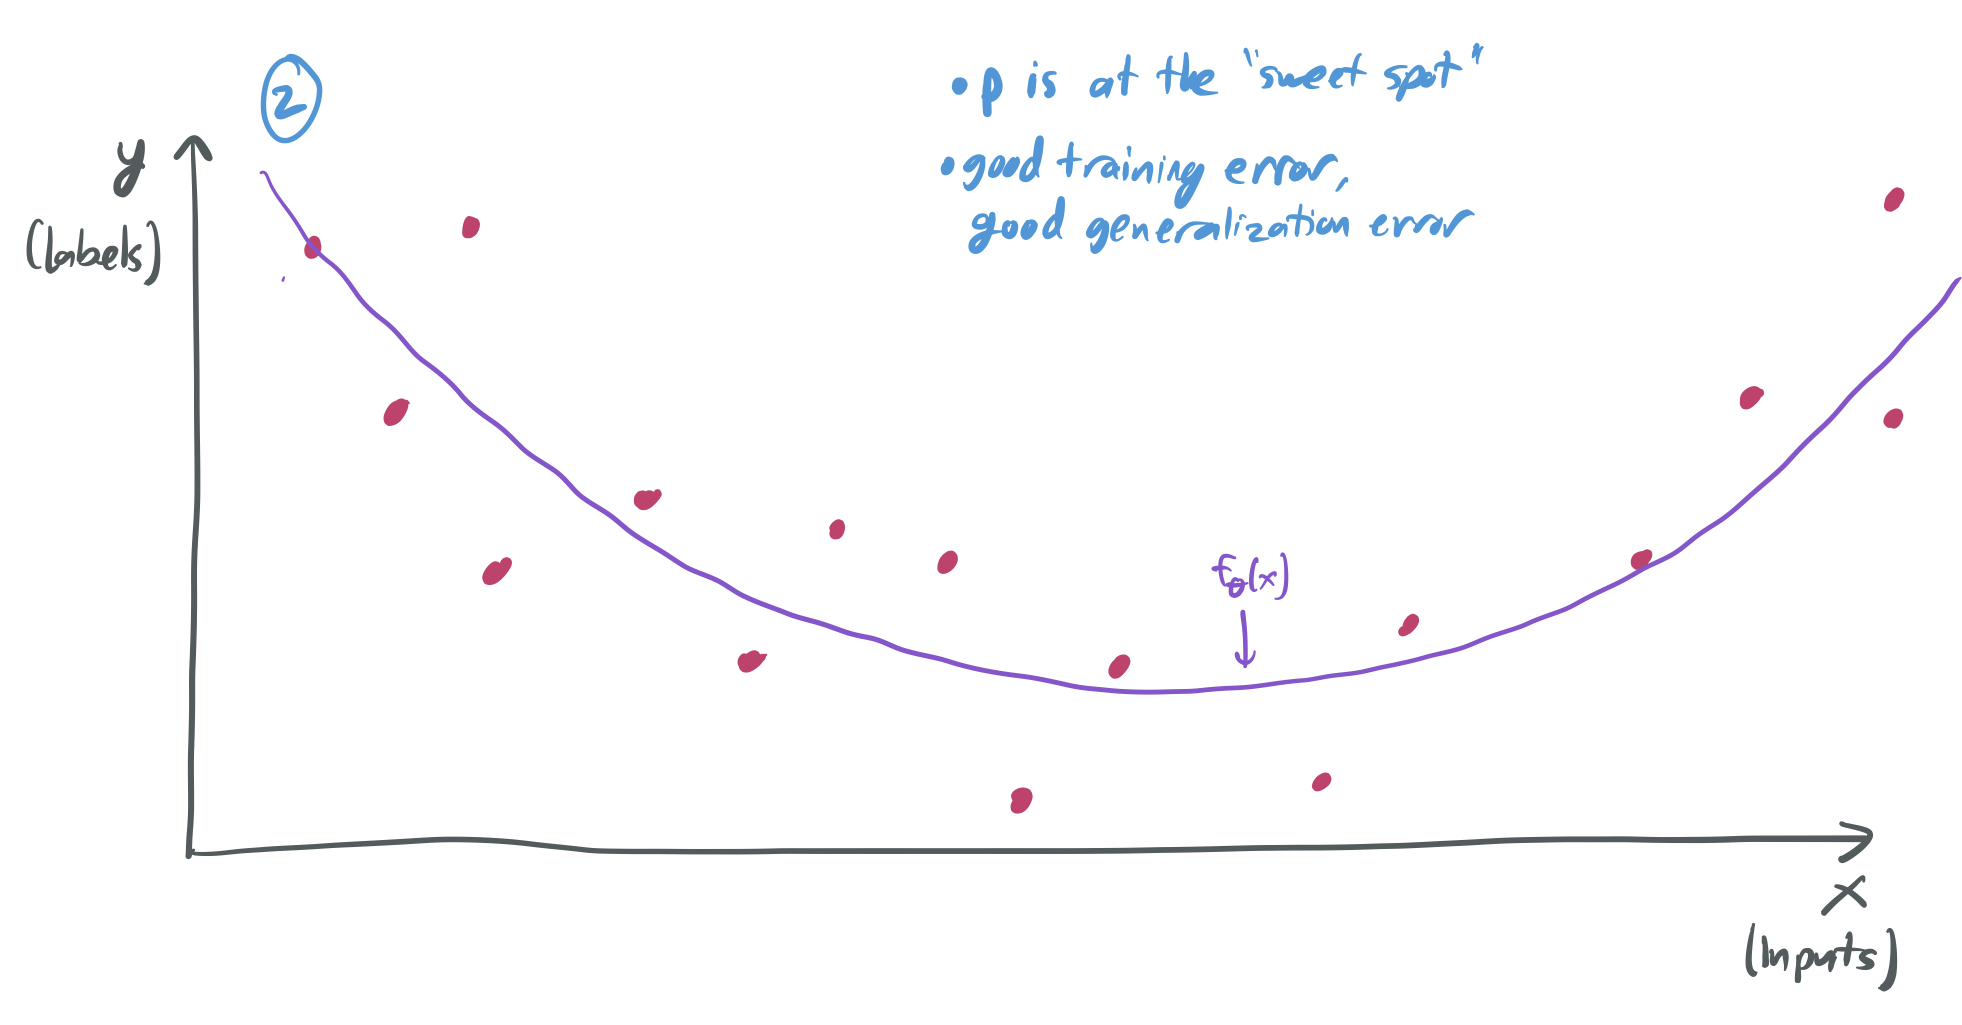 2
• p is at the "sweet spot"
y
(labels)
• good training error,
good generalization error
f_θ(x)
x
(inputs)